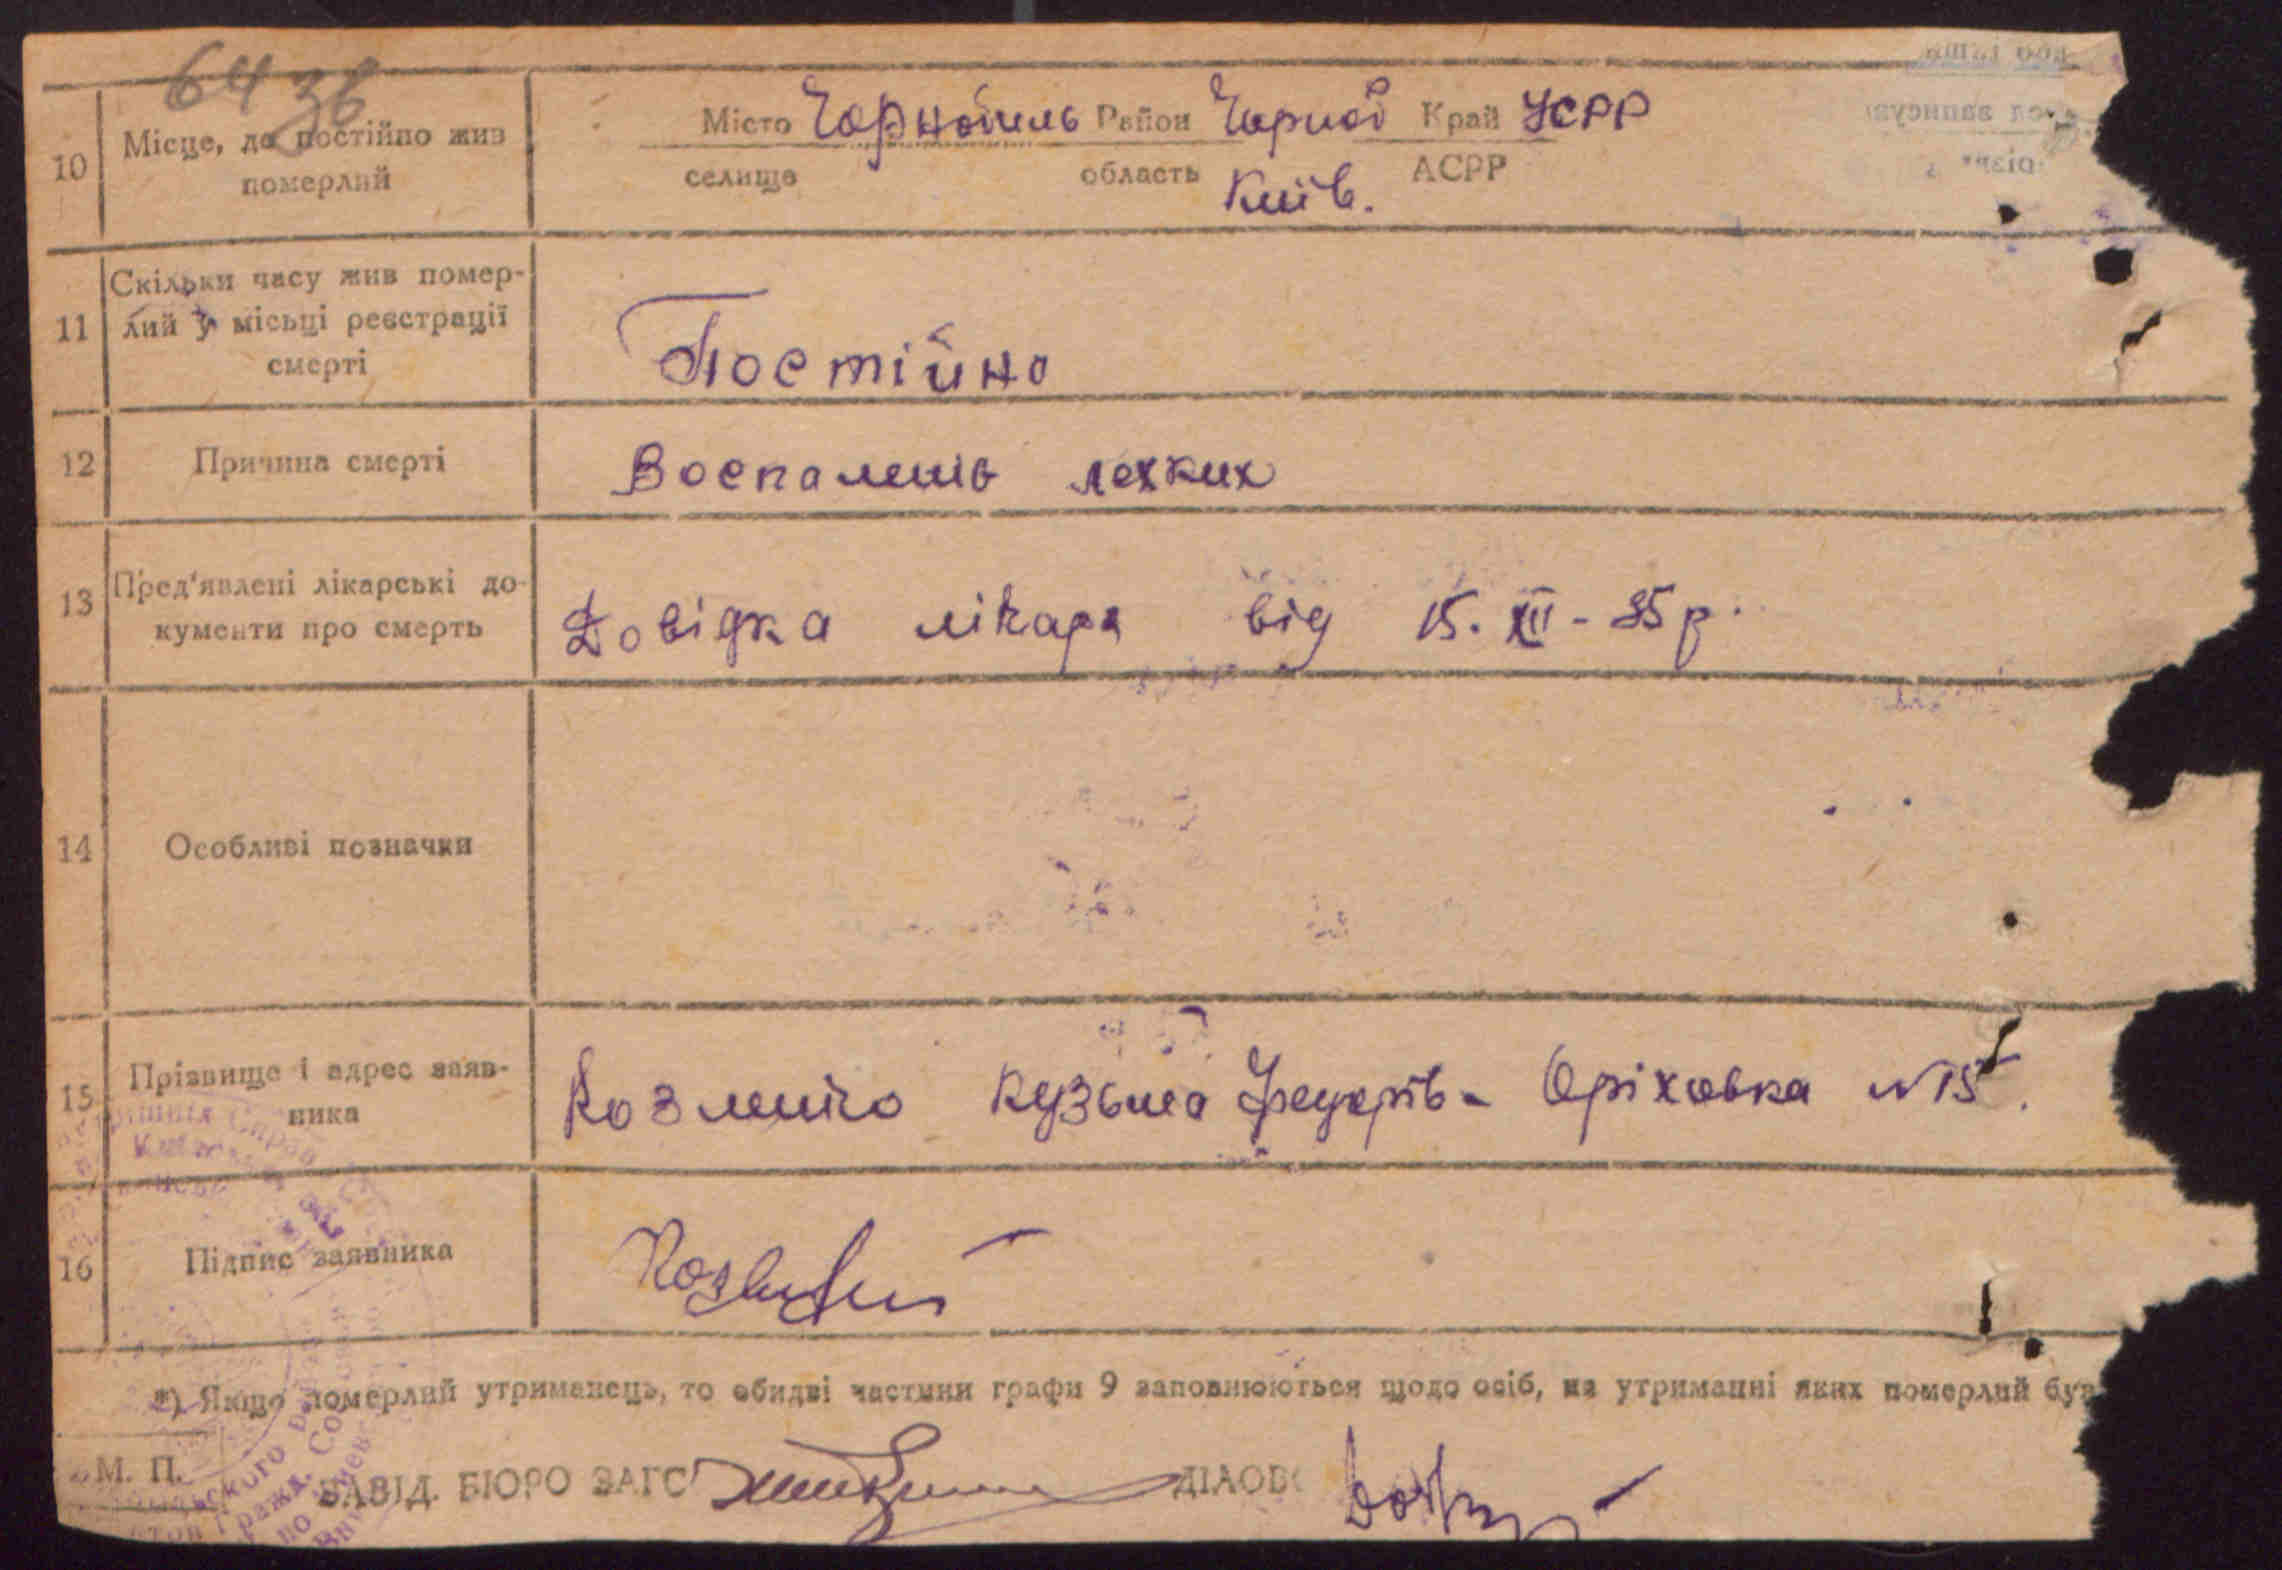 6436
10 Місце, де постійно жив померлий
Місто Чорнобиль Район Чорноб Край УСРР
селище область Київ. АСРР
11 Скільки часу жив помер-
лий у місьці реєстрації
смерті
Постійно
12 Причина смерті
Воспаленія лехких
13 Пред'явлені лікарські до-
кументи про смерть
Довідка лікаря від 15.XII-35р.
14 Особливі позначки
15 Прізвище і адрес заяв-
ника
Козленко Кузьма Федорів- Оріховка N15.
16 Підпис заявника
*) Якщо померлий утриманець, то обидві частини графи 9 заповнюються щодо осіб, на утриманні яких померлий був
М. П.
ЗАВІД. БЮРО ЗАГС ДІЛОВ